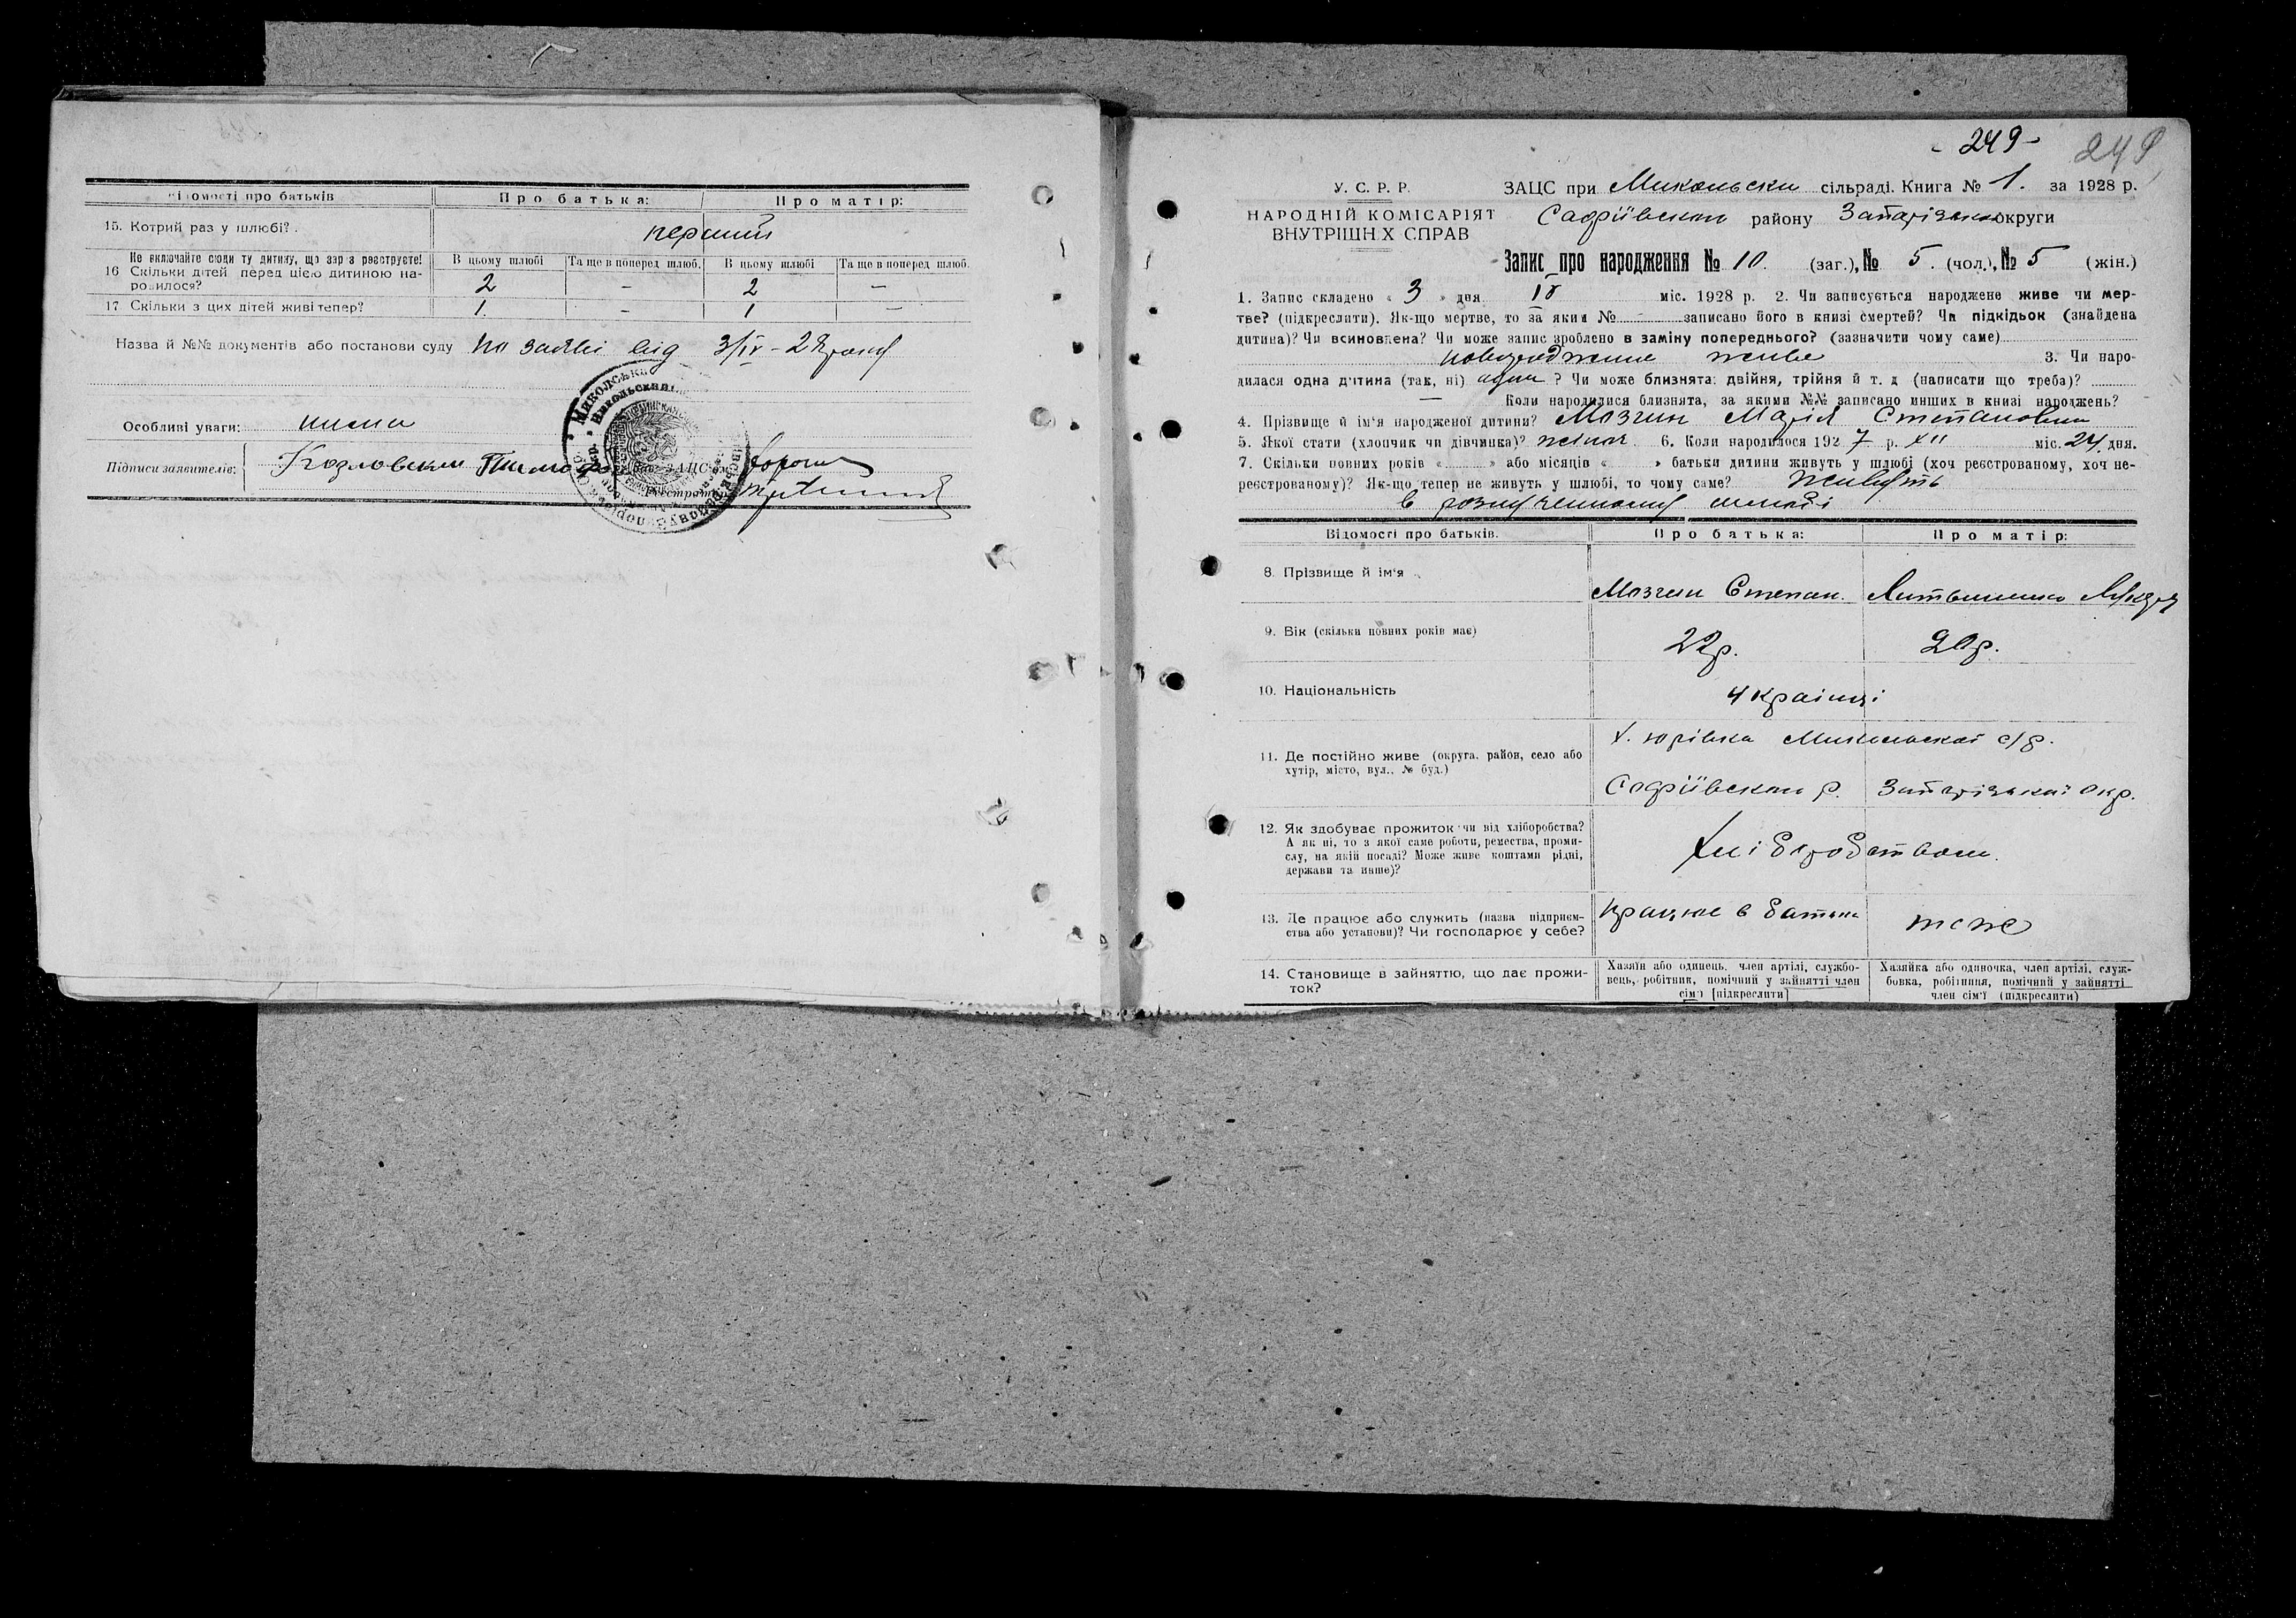 Відомості про батьків Про батька: Про матір:
15. Котрий раз у шлюбі? перший
Не включайте сюди ту дитину, що зараз реєструєте!
16 Скільки дітей перед цією дитиною на-
родилося?
В цьому шлюбі Та ще в поперед шлюб. В цьому шлюбі Та ще в поперед шлюб.
2 – 2 –
17 Скільки з цих дітей живі тепер? 1. – 1 –
Назва й №№ документів або постанови суду по заяві від 3/IV – 28 року
Особливі уваги: нима
Підписи заявителів: Козловский
- 249 - 249
У. С. Р. Р.
НАРОДНІЙ КОМІСАРІЯТ
ВНУТРІШН Х СПРАВ
ЗАЦС при Микольски сільраді. Книга № 1. за 1928 р.
Софіївском району Запорізької округи
Запис про народження № 10. (заг.), № 5. (чол.), № 5 (жін.)
1. Запис складено « 3 » дня IV міс. 1928 р. 2. Чи записується народжене живе чи мер-
тве? (підкреслити). Як-що мертве, то за яким № записано його в книзі смертей? Чи підкідьок (знайдена
дитина)? Чи всиновлена? Чи може запис зроблено в заміну попереднього? (зазначити чому саме)
живе 3. Чи наро-
дилася одна дитина (так, ні) ? Чи може близнята: двійня, трійня й т. д (написати що треба)?
Коли народилися близнята, за якими №№ записано инших в книзі народжень?
4. Прізвище й ім'я народженої дитини? Мозгин Марія Степановна
5. Якої стати (хлопчик чи дівчинка)? жіноч 6. Коли народилося 1927 р. XII міс. 24 дня.
7. Скільки повних років « » або місяців « » батьки дитини живуть у шлюбі (хоч реєстрованому, хоч не-
реєстрованому)? Як-що тепер не живуть у шлюбі, то чому саме? Живуть
в
Відомості про батьків. Про батька: Про матір:
8. Прізвище й ім'я Мозгин Степан. Литвиненко
9. Вік (скільки повних років має) 22р. 20р.
10. Національність українці
11. Де постійно живе (округа, район, село або
хутір, місто, вул., № буд.)
х. Юрівка Микольской с/р.
Софіївском р. Запорізької окр.
12. Як здобуває прожиток чи від хліборобства?
А як ні, то з якої саме роботи, ремества, проми-
слу, на якій посаді? Може живе коштами рідні,
держави та инше)?
Хліборобством.
13. Де працює або служить (назва підприєм-
ства або установи)? Чи господарює у себе?
працює в батька тоже
14. Становище в зайняттю, що дає прожи-
ток?
Хазяїн або одинець, член артілі, службо-
вець, робітник, помічний у зайнятті член
сім'ї [підкреслити]
Хазяйка або одиночка, член артілі, служ-
бовка, робітниця, помічний у зайнятті
член сім'ї (підкреслити)